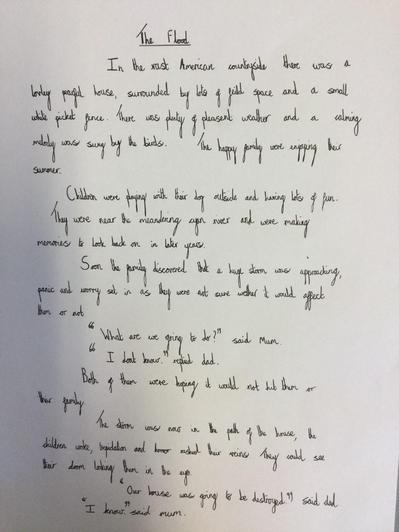 The Flood
In the vast American countryside there was a
lovley peacful house, surrounded by lots of feild space and a small
white picket fence. There was plenty of pleasent weather and a calming
melody was sung by the birds. The happy family were enjoying their
summer.
Children were playing with their dog outside and having lots of fun.
They were near the meandering cyan river and were making
memories to look back on in later years.
Soon the family discovered that a huge storm was approaching,
panic and worry set in as they were not sure wether it would affect
them or not
"What are we going to do?" said Mum.
"I dont know." replied dad.
Both of them were hoping it would not hit them or
their family.
The storm was now in the path of the house, the
children woke, trepidation and horror rushed their veins. They could see
their doom looking them in the eye.
"Our house was going to be destroyed." said dad
"I know." said mum.